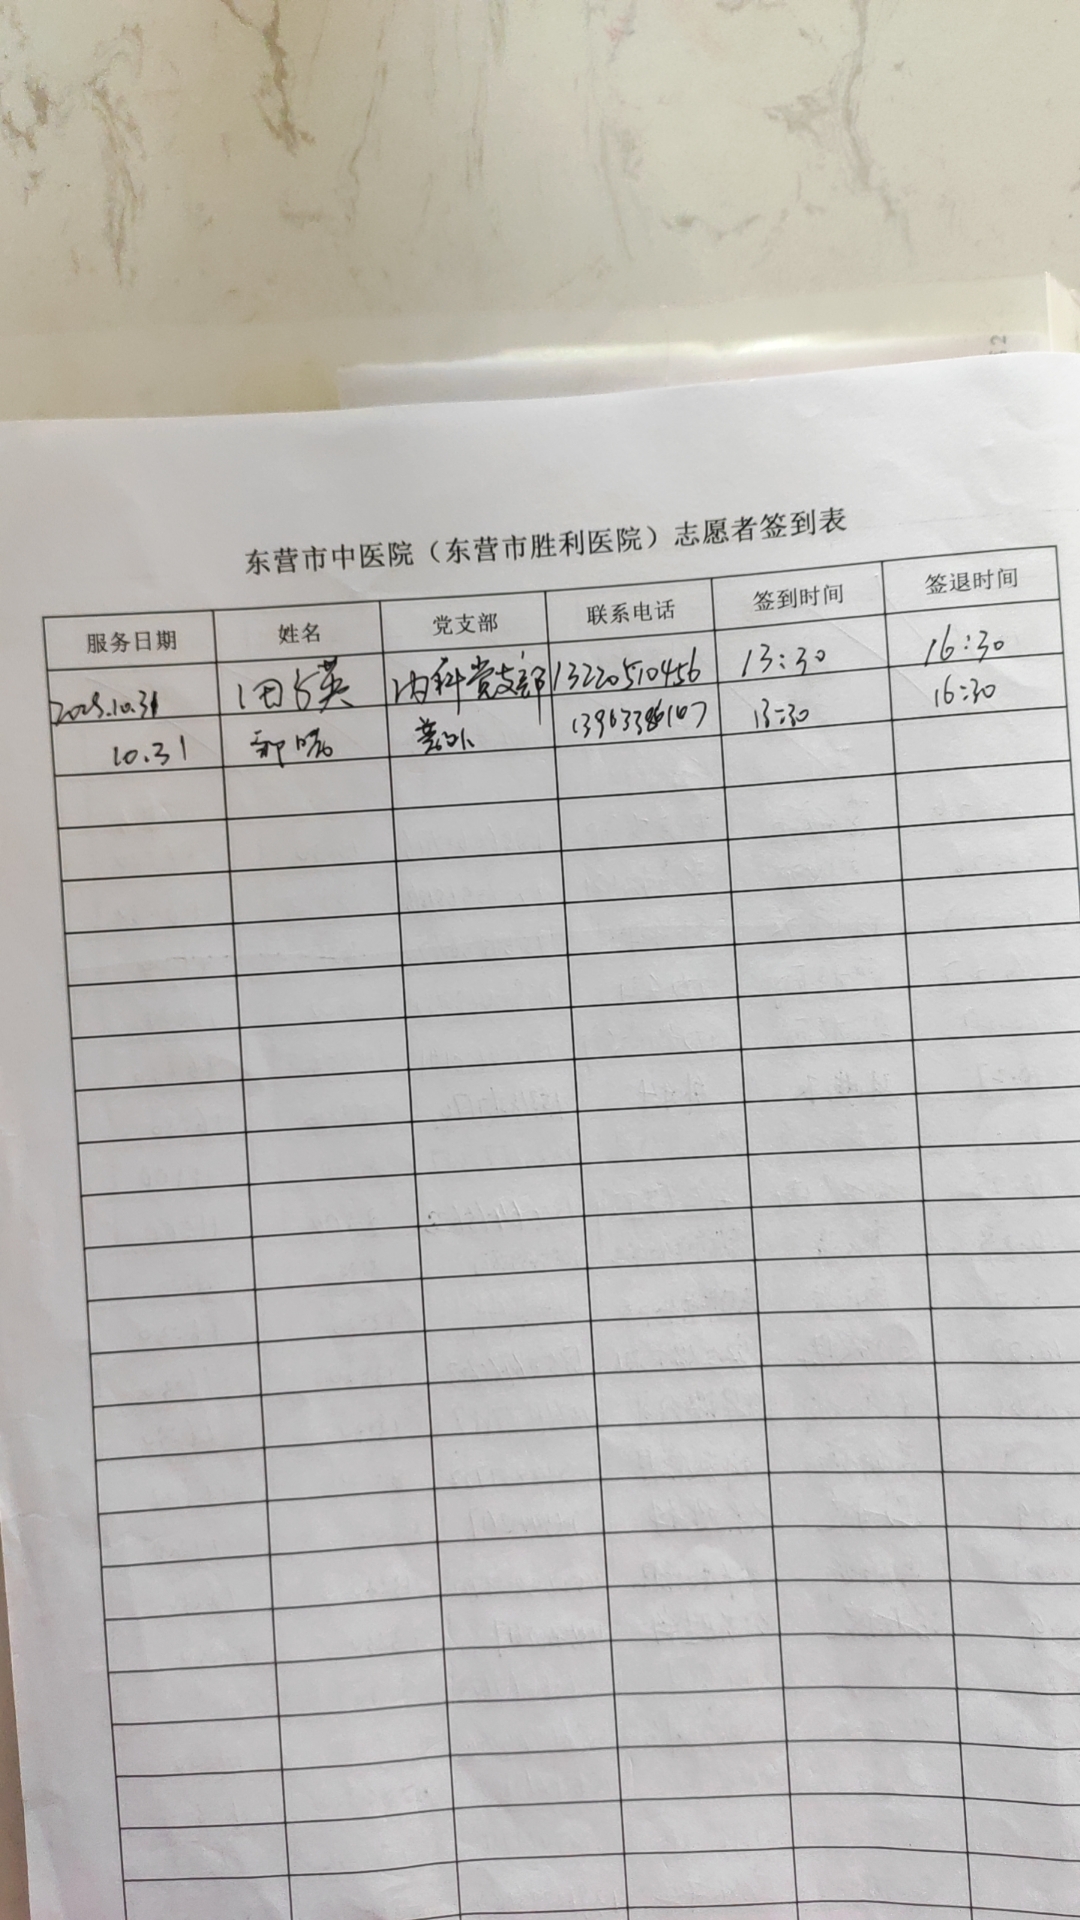 东营市中医院（东营市胜利医院）志愿者签到表
服务日期 姓名 党支部 联系电话 签到时间 签退时间
2025.10.31 田 英 内科党支部 13220510456 13:30 16:30
10.31 13:30 16:30